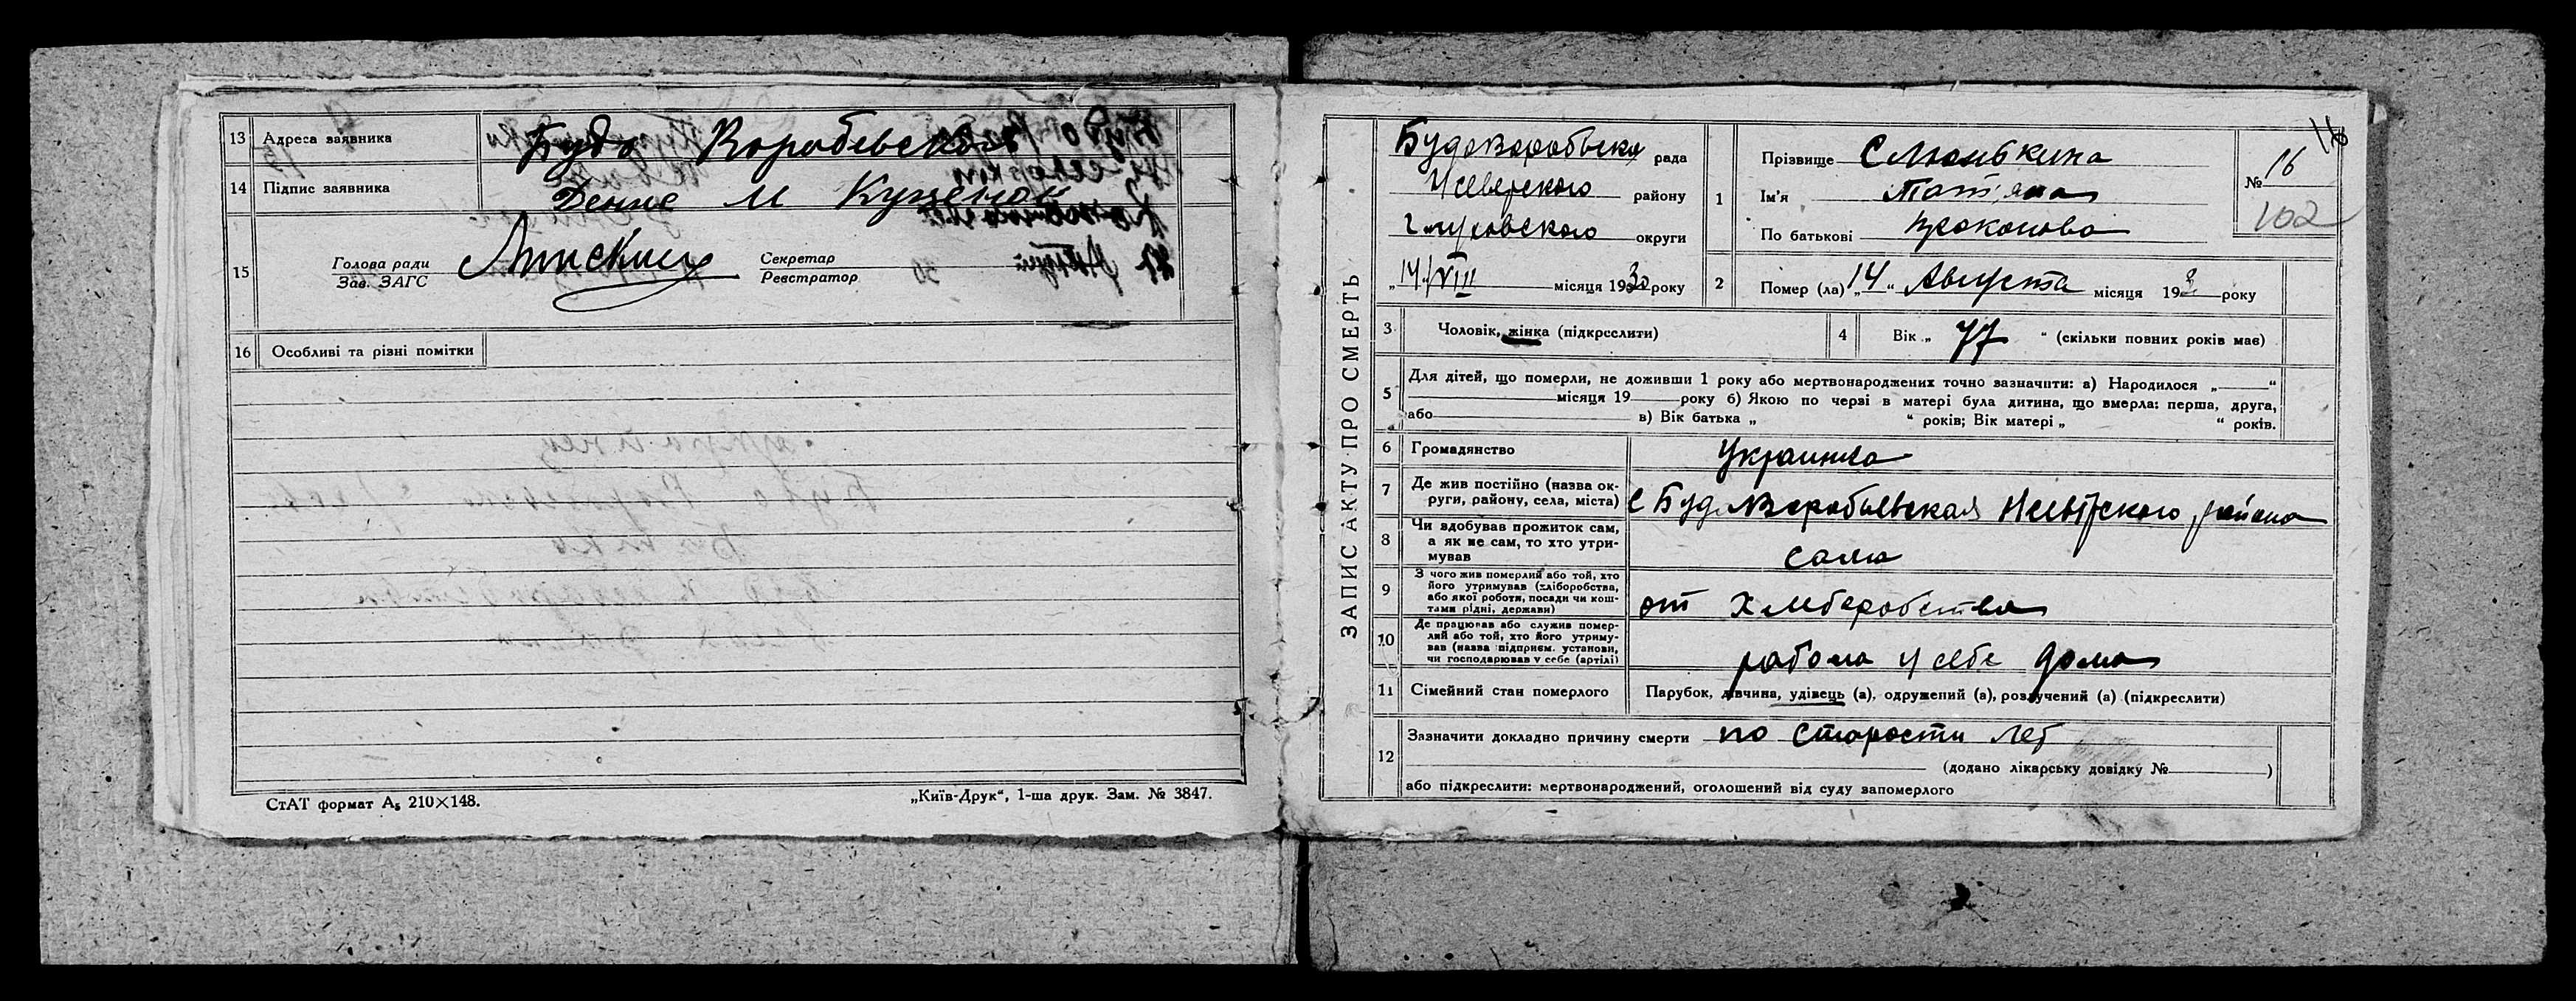 13 Адреса заявника Буда Воробевская
14 Підпис заявника Денис М Куценок
15 Голова ради
Зав. ЗАГС
Секретар
Реєстратор
16 Особливі та різні помітки
СтАТ формат А₅ 210×148.
„Київ-Друк“, 1-ша друк. Зам. № 3847.
ЗАПИС АКТУ ПРО СМЕРТЬ
Будоворобьевска рада
Нсеверского району
Глуховского округи
„14“ VIII місяця 1930 року
1 Прізвище Смонькина
Ім'я Татіяна
По батькові Прокопова
№ 16
102
16
2 Помер (ла) „14“ Августа місяця 193 року
3 Чоловік, жінка (підкреслити)
4 Вік „ 77 “ (скільки повних років має)
5 Для дітей, що померли, не доживши 1 року або мертвонароджених точно зазначити: а) Народилося „ “
місяця 19 року б) Якою по черзі в матері була дитина, що вмерла: перша, друга,
або в) Вік батька „ “ років; Вік матері „ “ років.
6 Громадянство Украинка
7 Де жив постійно (назва округи, району, села, міста) с Буда Воробьевская Нсеверского района
8 Чи вдобував прожиток сам,
а як не сам, то хто утримував
сама
9 З чого жив померлий або той, хто
його утримував (хліборобства,
або якої роботи, посади чи коштами рідні, держави)
от Хлеборобства
10 Де працював або служив померлий або той, хто його утримував (назва підприєм. установи,
чи господарював у себе (артілі)
работа у себе дома
11 Сімейний стан померлого Парубок, дівчина, удівець (а), одружений (а), розлучений (а) (підкреслити)
12 Зазначити докладно причину смерти по старости лет
(додано лікарську довідку № )
або підкреслити: мертвонароджений, оголошений від суду запомерлого